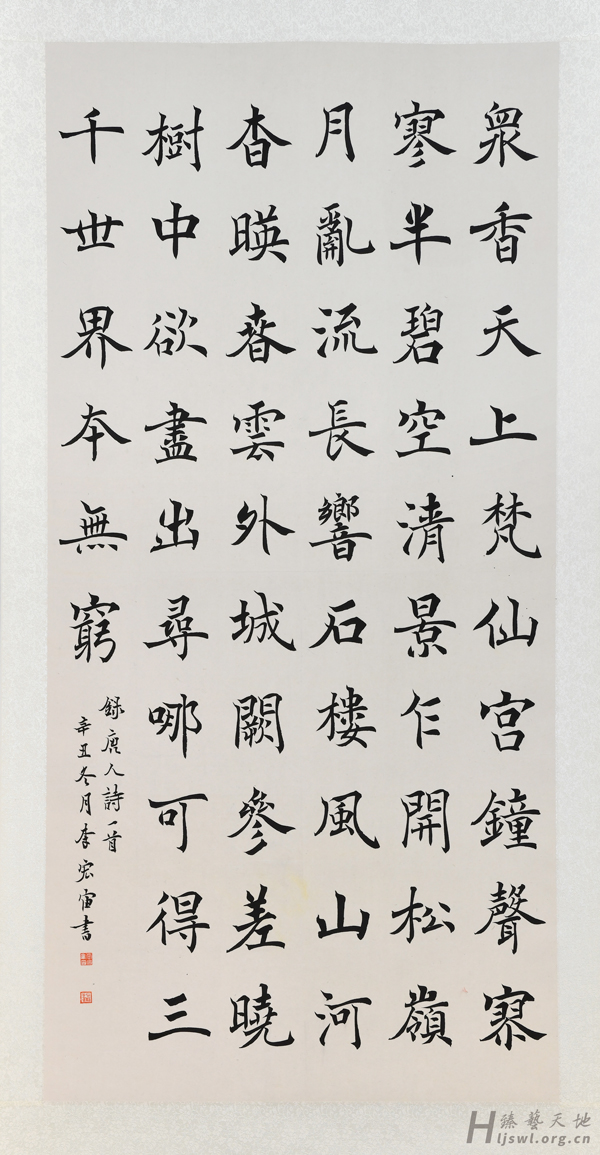 衆香天上梵仙宮鐘聲寥
寥半碧空清景乍開松嶺
月亂流長響石樓風山河
杳暎春雲外城闕參差曉
樹中欲盡出尋哪可得三
千世界本無窮
錄唐人詩一首
辛丑冬月李宏宙書
臻藝天地
Hljswl.org.cn